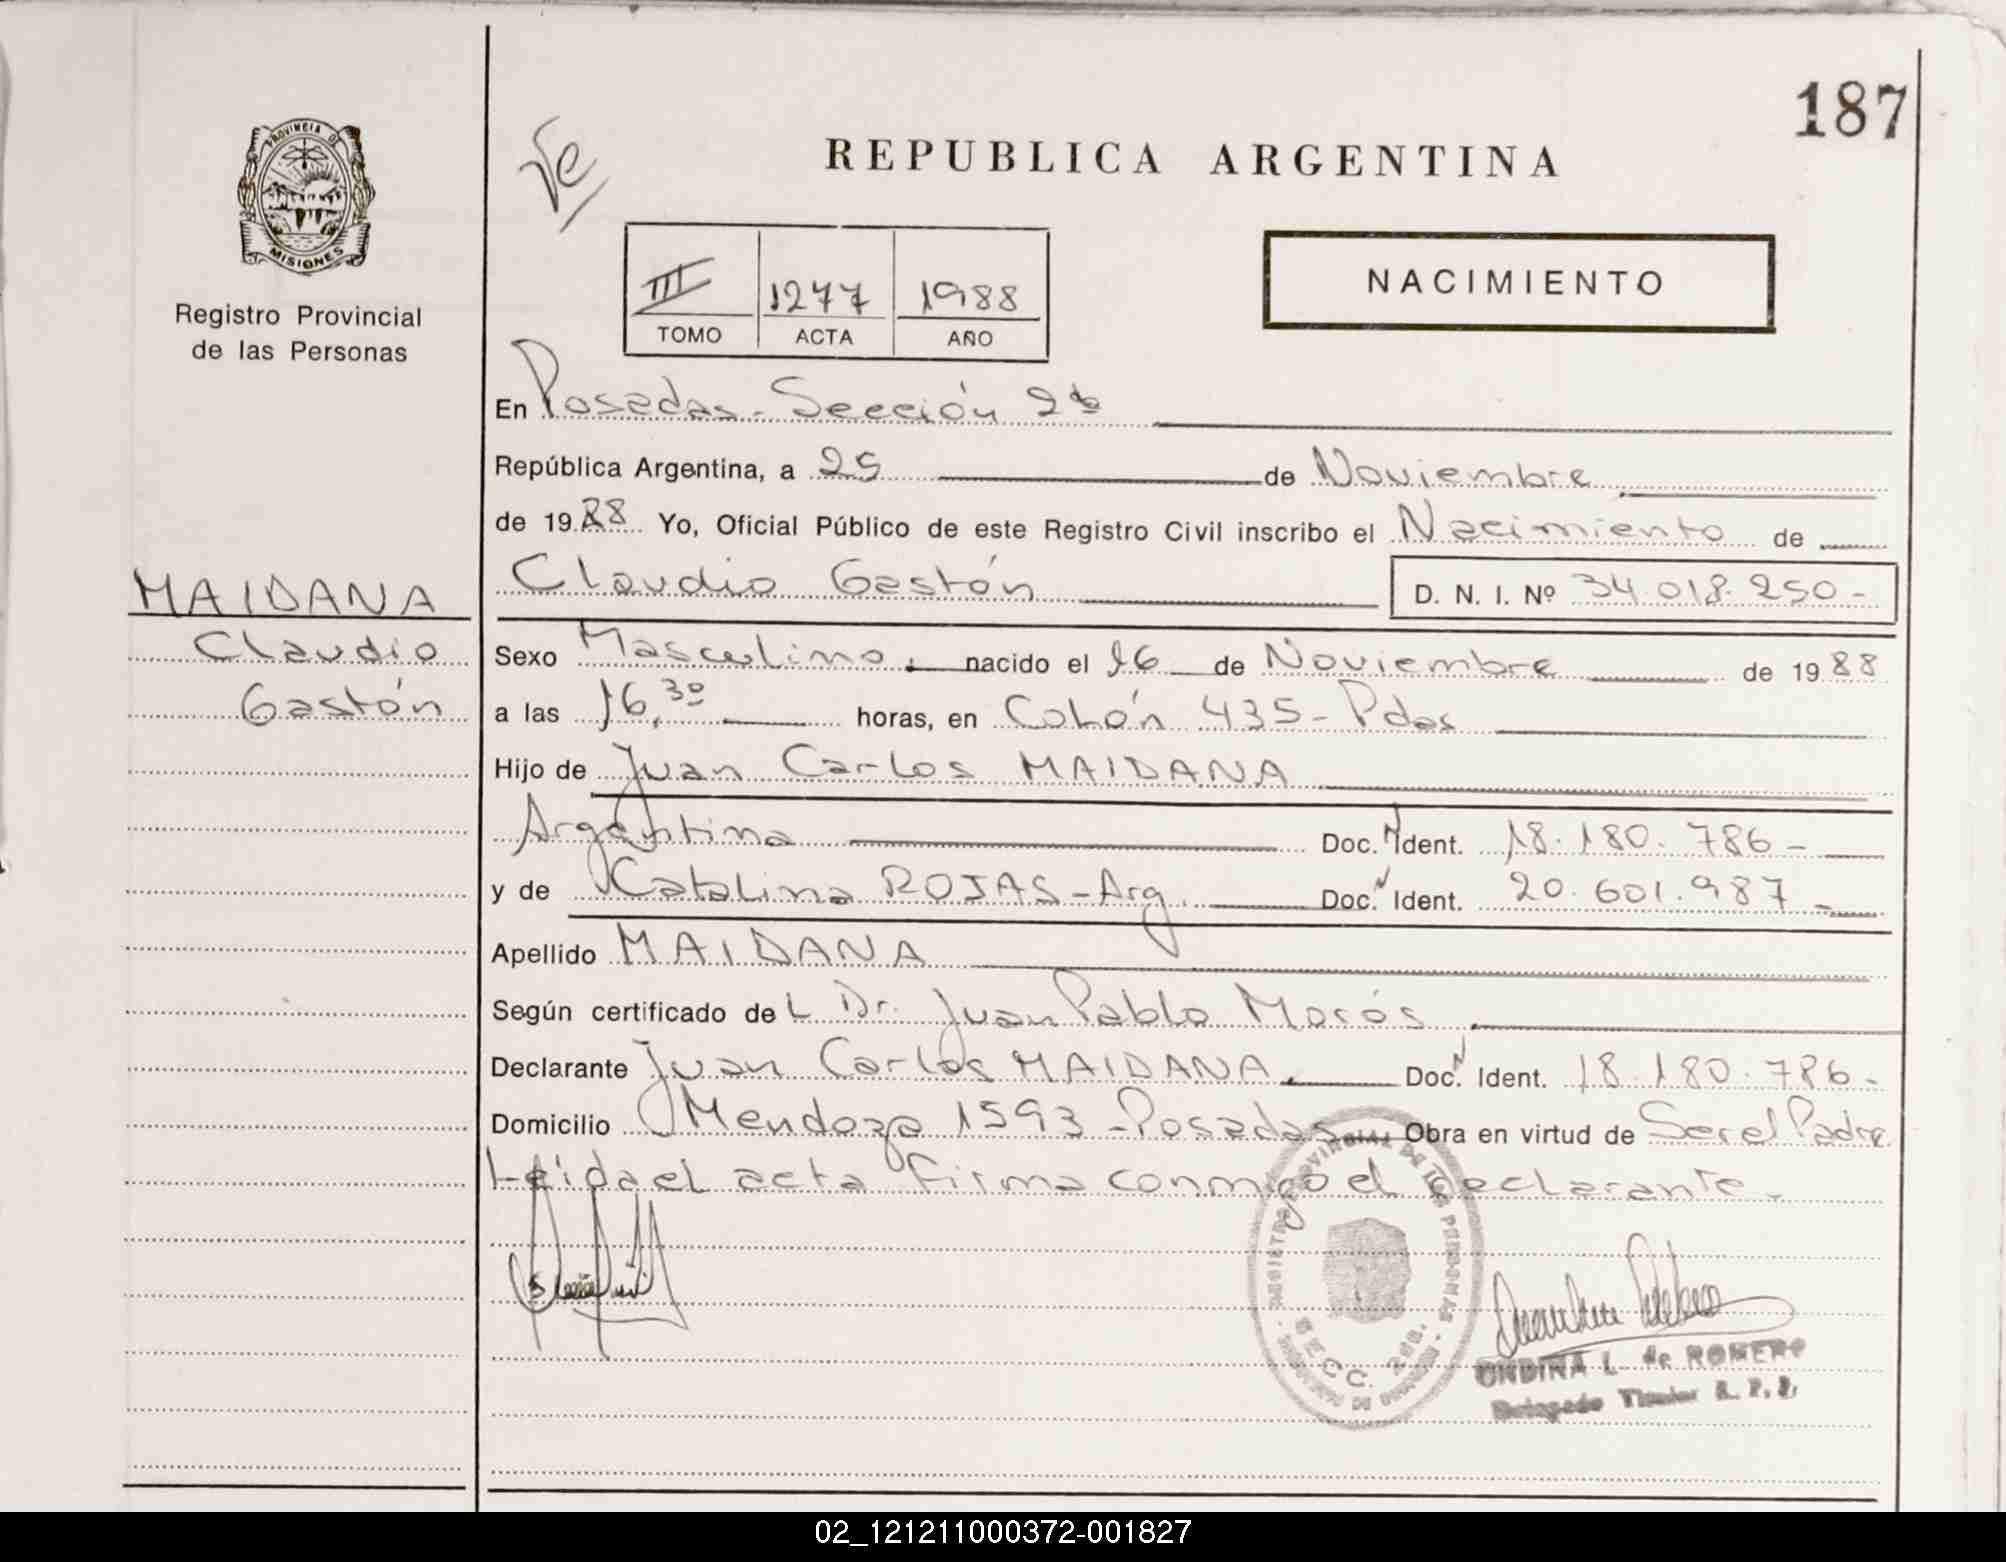 187
PROVINCIA DE
MISIONES
Registro Provincial
de las Personas
REPUBLICA ARGENTINA
NACIMIENTO
III 1277 1988
TOMO ACTA AÑO
En Posadas - Sección 2da
República Argentina, a 25 de Noviembre
de 1988 Yo, Oficial Público de este Registro Civil inscribo el Nacimiento de
Claudio Gastón D. N. I. Nº 34.018.250-
MAIDANA
Claudio
Gastón
Sexo Masculino. nacido el 16 de Noviembre de 1988
a las 16,30 horas, en Colón 435 - Pdas
Hijo de Juan Carlos MAIDANA
Argentina Doc. N Ident. 18.180.786-
y de Catalina ROJAS - Arg. Doc. N Ident. 20.601.987-
Apellido MAIDANA
Según certificado del Dr. Juan Pablo Morós
Declarante Juan Carlos MAIDANA. Doc. N Ident. 18.180.786-
Domicilio Mendoza 1593 - Posadas Obra en virtud de Ser el Padre
Leida el acta firma conmigo el declarante.
SECC. 2da.
ONDINA L. de ROMERO
Delegado Titular R. P. P.
02_121211000372-001827